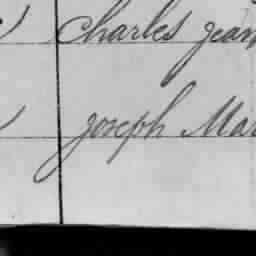 Charles Jean
Joseph Mar